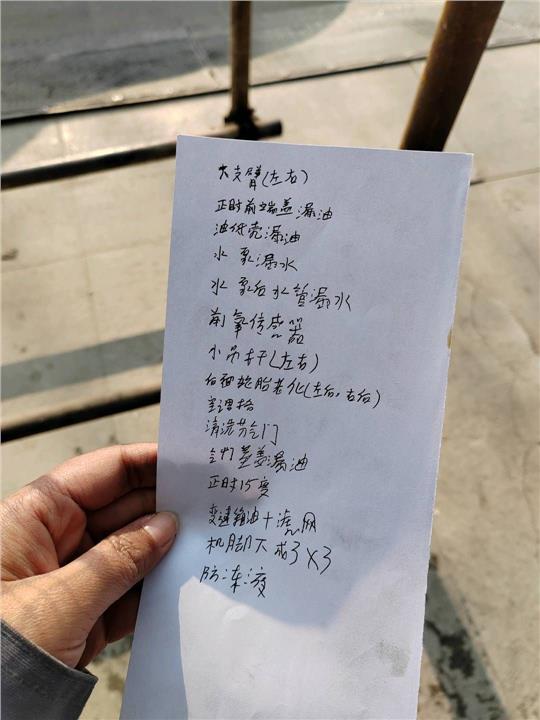 大支臂(左右)
正时前端盖漏油
油低壳漏油
水泵漏水
水泵后水管漏水
前氧传感器
小吊杆(左右)
后面轮胎老化(左后,右后)
空调格
清洗节气门
气门室盖漏油
正时15度
变速箱油+滤网
机脚下成3X3
防冻液